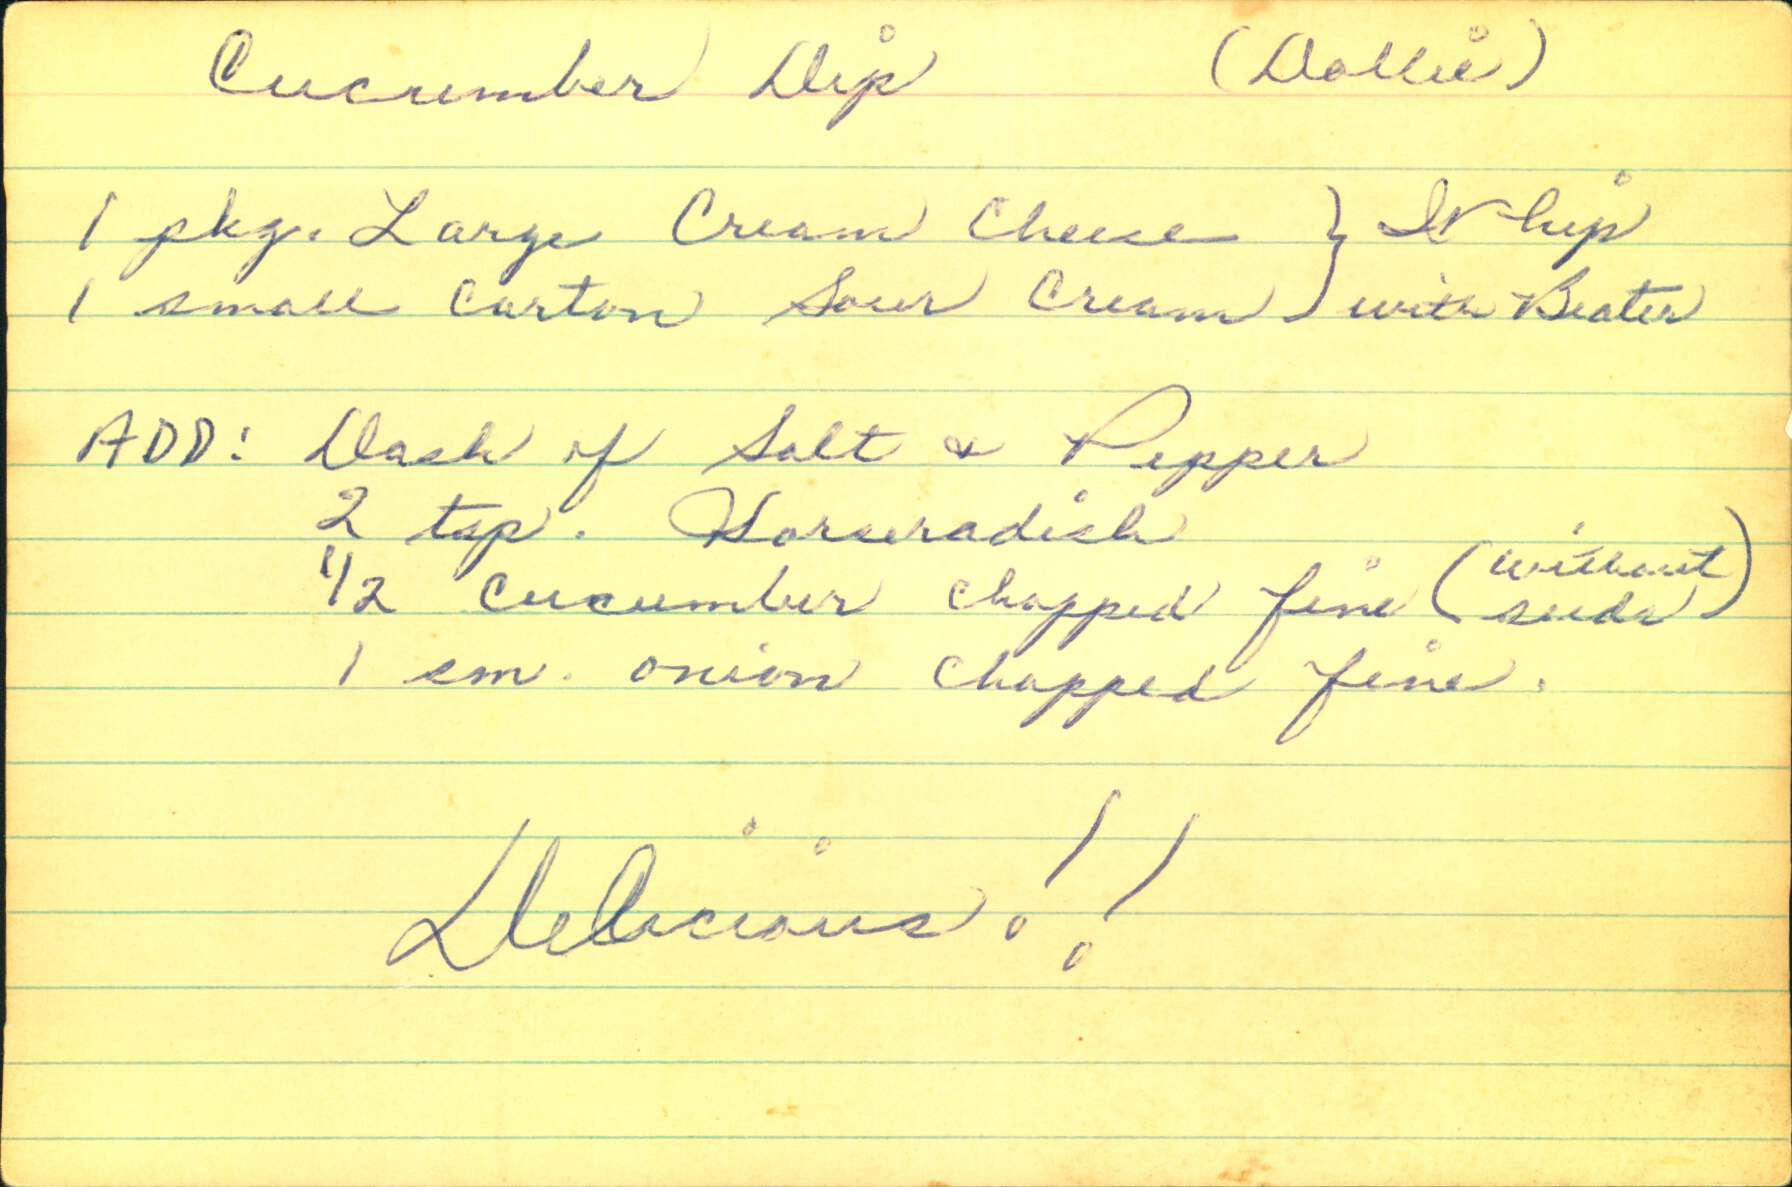 Cucumber Dip (Dollie)
1 pkg. Large Cream Cheese } Whip
1 small carton Sour Cream } with Beater
ADD: Dash of Salt & Pepper
2 tsp. Horseradish
1/2 cucumber chopped fine (without seeds)
1 sm. onion chopped fine.
Delicious!!